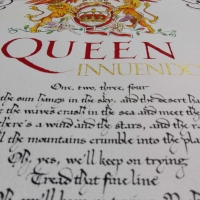 QUEEN
INNUENDO
One, two, three, four
the sun hangs in the sky, and the desert ha
the waves crush in the sea and meet the
there's a wind and the stars, and the ra
ll the mountains crumble into the pla
Oh yes, we'll keep on trying
Tread that fine line
Oh, we'll keep on